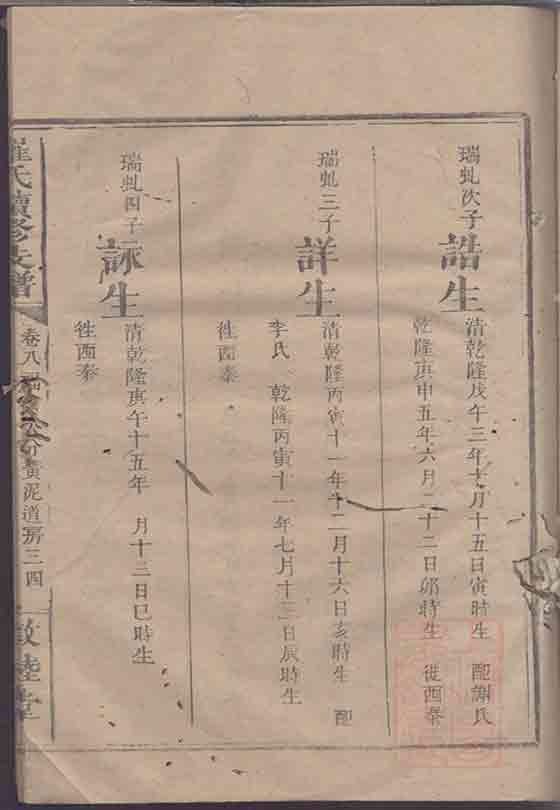 瑞虬次子
誥生
清乾隆戊午三年十月十五日寅時生 配謝氏
乾隆庚申五年六月二十二日卯時生 徙西秦
瑞虬三子
詳生
清乾隆丙寅十一年十二月十六日亥時生 配
李氏 乾隆丙寅十一年七月十三日辰時生
徃西秦
瑞虬四子
詠生
清乾隆庚午十五年 月十三日巳時生
徃西秦
崔氏續修支譜
卷八 分黃泥道房三四
敦睦堂